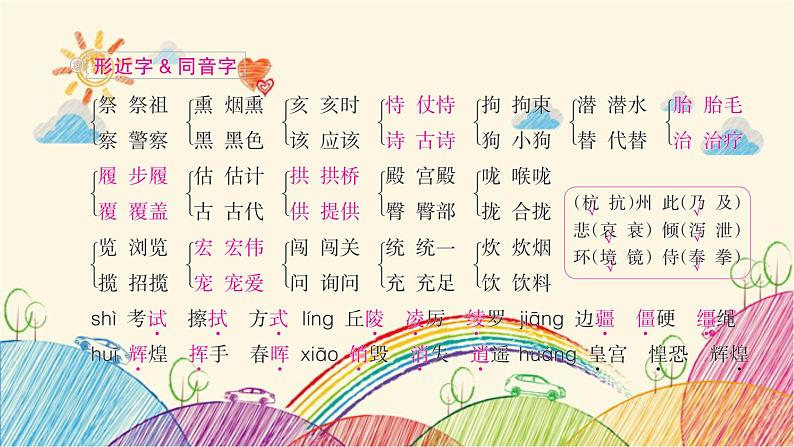 形近字&同音字
祭 祭祖 熏 烟熏 亥 亥时 恃 仗恃 拘 拘束 潜 潜水 胎 胎毛
察 警察 黑 黑色 该 应该 诗 古诗 狗 小狗 替 代替 治 治疗
履 步履 估 估计 拱 拱桥 殿 宫殿 咙 喉咙
覆 覆盖 古 古代 供 提供 臀 臀部 拢 合拢
(杭 抗)州 此(乃 及)
悲(哀 衰) 倾(泻 泄)
环(境 镜) 侍(奉 拳)
览 浏览 宏 宏伟 闯 闯关 统 统一 炊 炊烟
揽 招揽 宠 宠爱 问 询问 充 充足 饮 饮料
shì 考试 擦拭 方式 líng 丘陵 凌厉 绫罗 jiāng 边疆 僵硬 缰绳
huī 辉煌 挥手 春晖 xiāo 销毁 消失 逍遥 huáng 皇宫 惶恐 辉煌